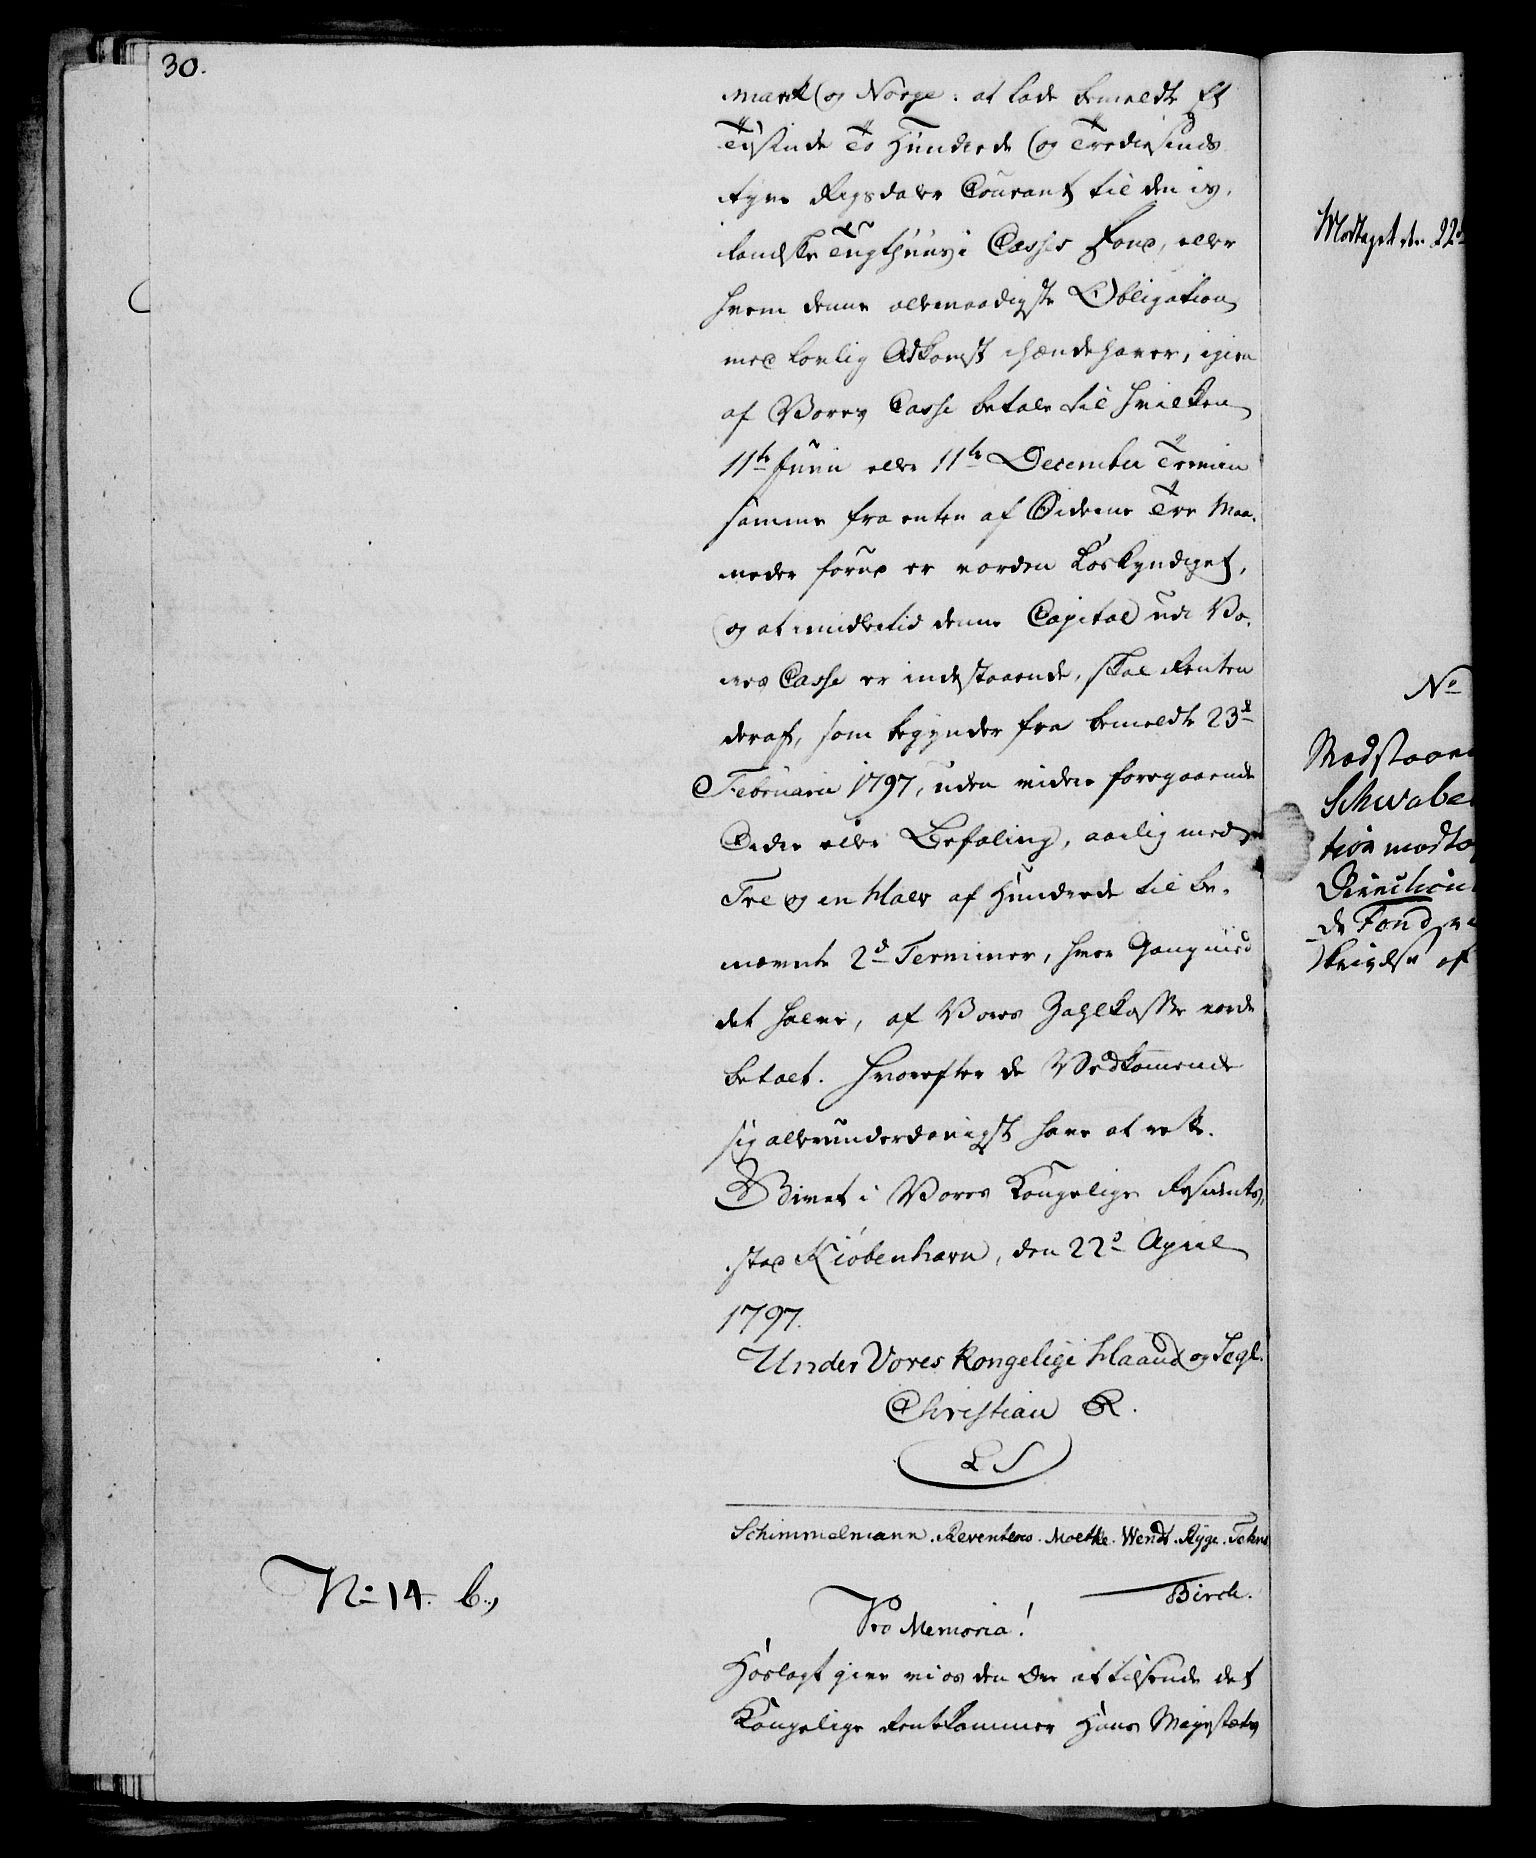 30.
mark og Norge: at lade bemeldte Et
Tusinde To Hundrede og Trediesinds
tyve Rigsdaler Courant til den is,
landske Tugthuus Casses Fond, eller
hvem denne allernaadigste Obligation
med lovlig Adkomst ihændehaver, igien
af Vores Casse betale til hvilken
11te Junii eller 11te December Termin
samme fra enten af Siderne Tre Maa,
neder forud er vorden Loskyndiget,
og at imidlertid denne Capital udi Vo,
res Casse er indestaaende, skal Renten
deraf, som begynder fra bemeldte 23de
Februarii 1797, uden videre foregaaende
Ordre eller Befaling, aarlig med
Tre og en Halv af Hundrede til be,
nævnte 2de Terminer, hver Gang med
det halve, af Vores Zahlkasse vorde
betalt. Hvorefter de Vedkommende
sig allerunderdanigst have at rette.
Givet i Vores Kongelige Residents,
stad Kiøbenhavn, den 22de April
1797.
Under Vores Kongelige Haand og Segl.
Christian R.
L S
Schimmelmann. Reventlow. Moltke. Wendt. Ryge.
Birch.
No 14. b.,
Pro Memoria!
Hoslagt give vi os den Ære at tilsende det
Kongelige Rentekammer Hans Majestæts
Modtaget den 22d
No
Modstaaen
Schwabe
tion modta
Direction
de Fond
skrivelse af